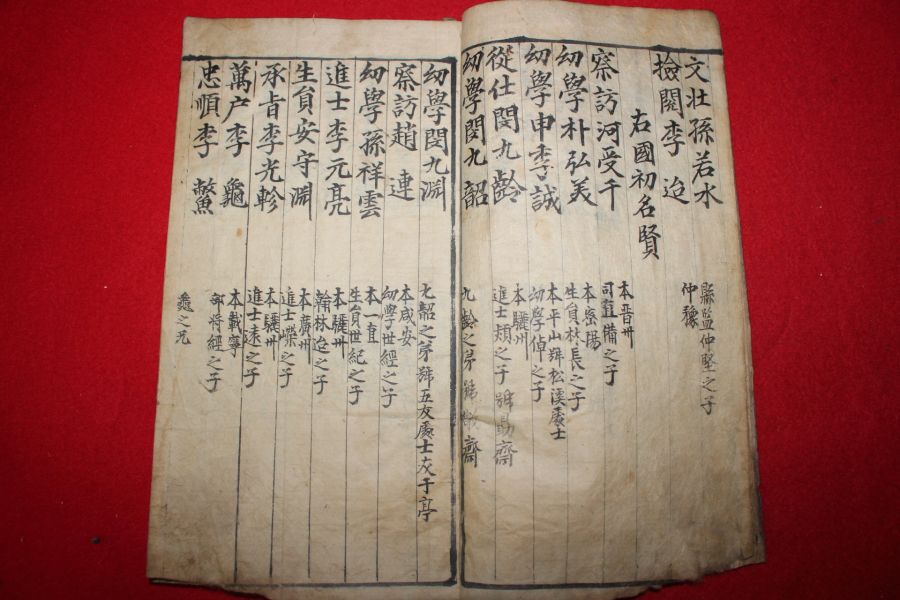 文壯孫若水
縣監仲堅之子
檢閱李迨
仲豫
右國初名賢
察訪河受千
本晋州
司直備之子
幼學朴弘美
本密陽
生員林長之子
幼學申季誠
本平山號松溪處士
幼學倬之子
從仕閔九齡
本驪州
進士頬之子
齋
幼學閔九韶
九齡之弟號
齋
幼學閔九淵
九韶之弟號五友處士友于亭
察訪趙連
本咸安
幼學世經之子
幼學孫祥雲
本一直
生員世紀之子
進士李元亮
本驪州
翰林迨之子
生員安守淵
本廣州
進士嶸之子
承旨李光軫
本驪州
進士遠之子
萬户李龜
本載寧
部將經之子
忠順李鱉
龜之兄